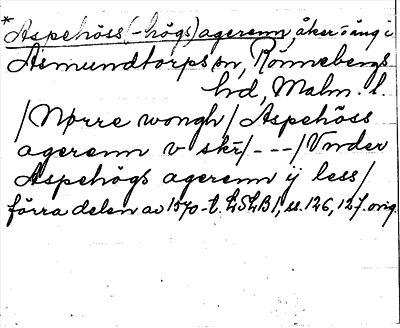 * Aspehöss (-högs) agerenn, åker o äng i
Asmundtorps sn, Rönnebergs
hd, Malm. l.
/Nørre wongh/ Aspehöss
agerenn v skr/ - - - /Vnder
Aspehögs agerenn ij less/
förra delen av 1570-t. LSLB1, ss. 126, 127. orig.